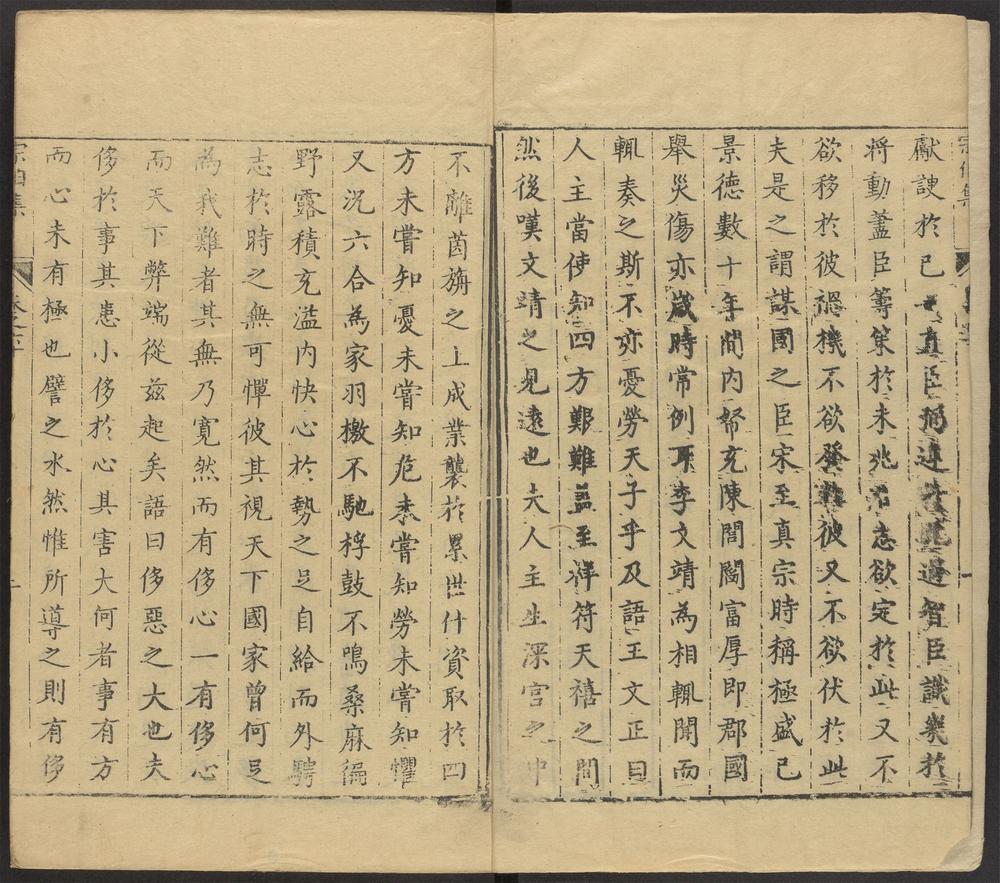 宗伯集
獻諛於已
直臣
過智臣識幾於
將動藎臣籌策於未兆
志欲定於此又不
欲移於彼禍機不欲發
彼又不欲伏於此
夫是之謂謀國之臣宋至真宗時稱極盛已
景德數十年間内帑充陳閭閻富厚即郡國
舉災傷亦歲時常例耳李文靖為相輒聞而
輒奏之斯不亦憂勞天子乎及語王文正曰
人主當使知四方艱難蓋至祥符天禧之間
然後嘆文靖之見遠也夫人主生深宮之中
不離茵旃之上成業襲於累世什資取於四
方未嘗知憂未嘗知危未嘗知勞未嘗知懼
又況六合為家羽檄不馳桴鼓不鳴桑麻徧
野露積充溢内快心於勢之足自給而外騁
志於時之無可憚彼其視天下國家曾何足
為我難者其無乃寛然而有侈心一有侈心
而天下弊端從兹起矣語曰侈惡之大也夫
侈於事其患小侈於心其害大何者事有方
而心未有極也譬之水然惟所導之則有侈
宗伯集
卷之